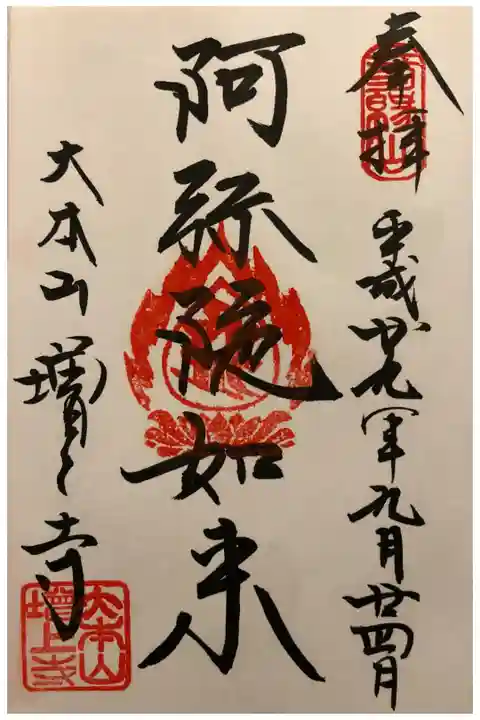 奉拝
平成廿九年九月廿四日
阿弥陀如来
大本山増上寺
大本山
增上寺